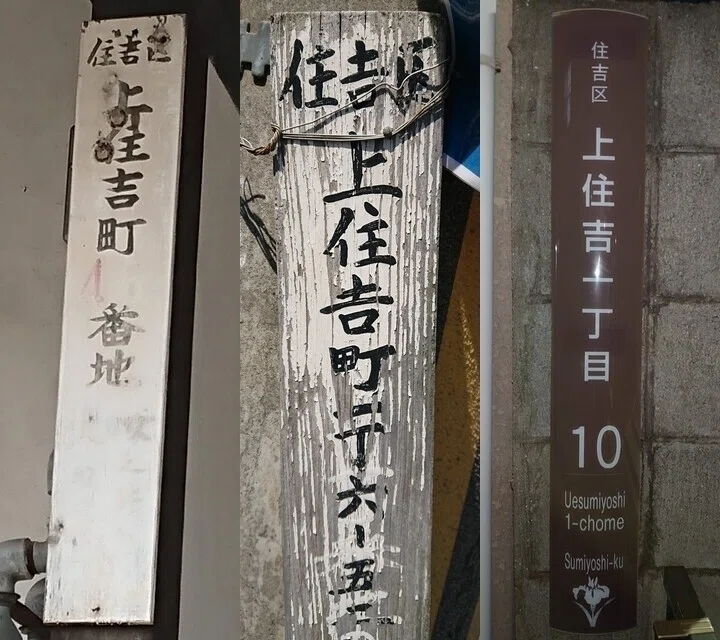 住吉区
上住吉町
番地
住吉区
上住吉町二丁六ー五二
住吉区
上住吉一丁目
10
Uesumiyoshi
1-chome
Sumiyoshi-ku